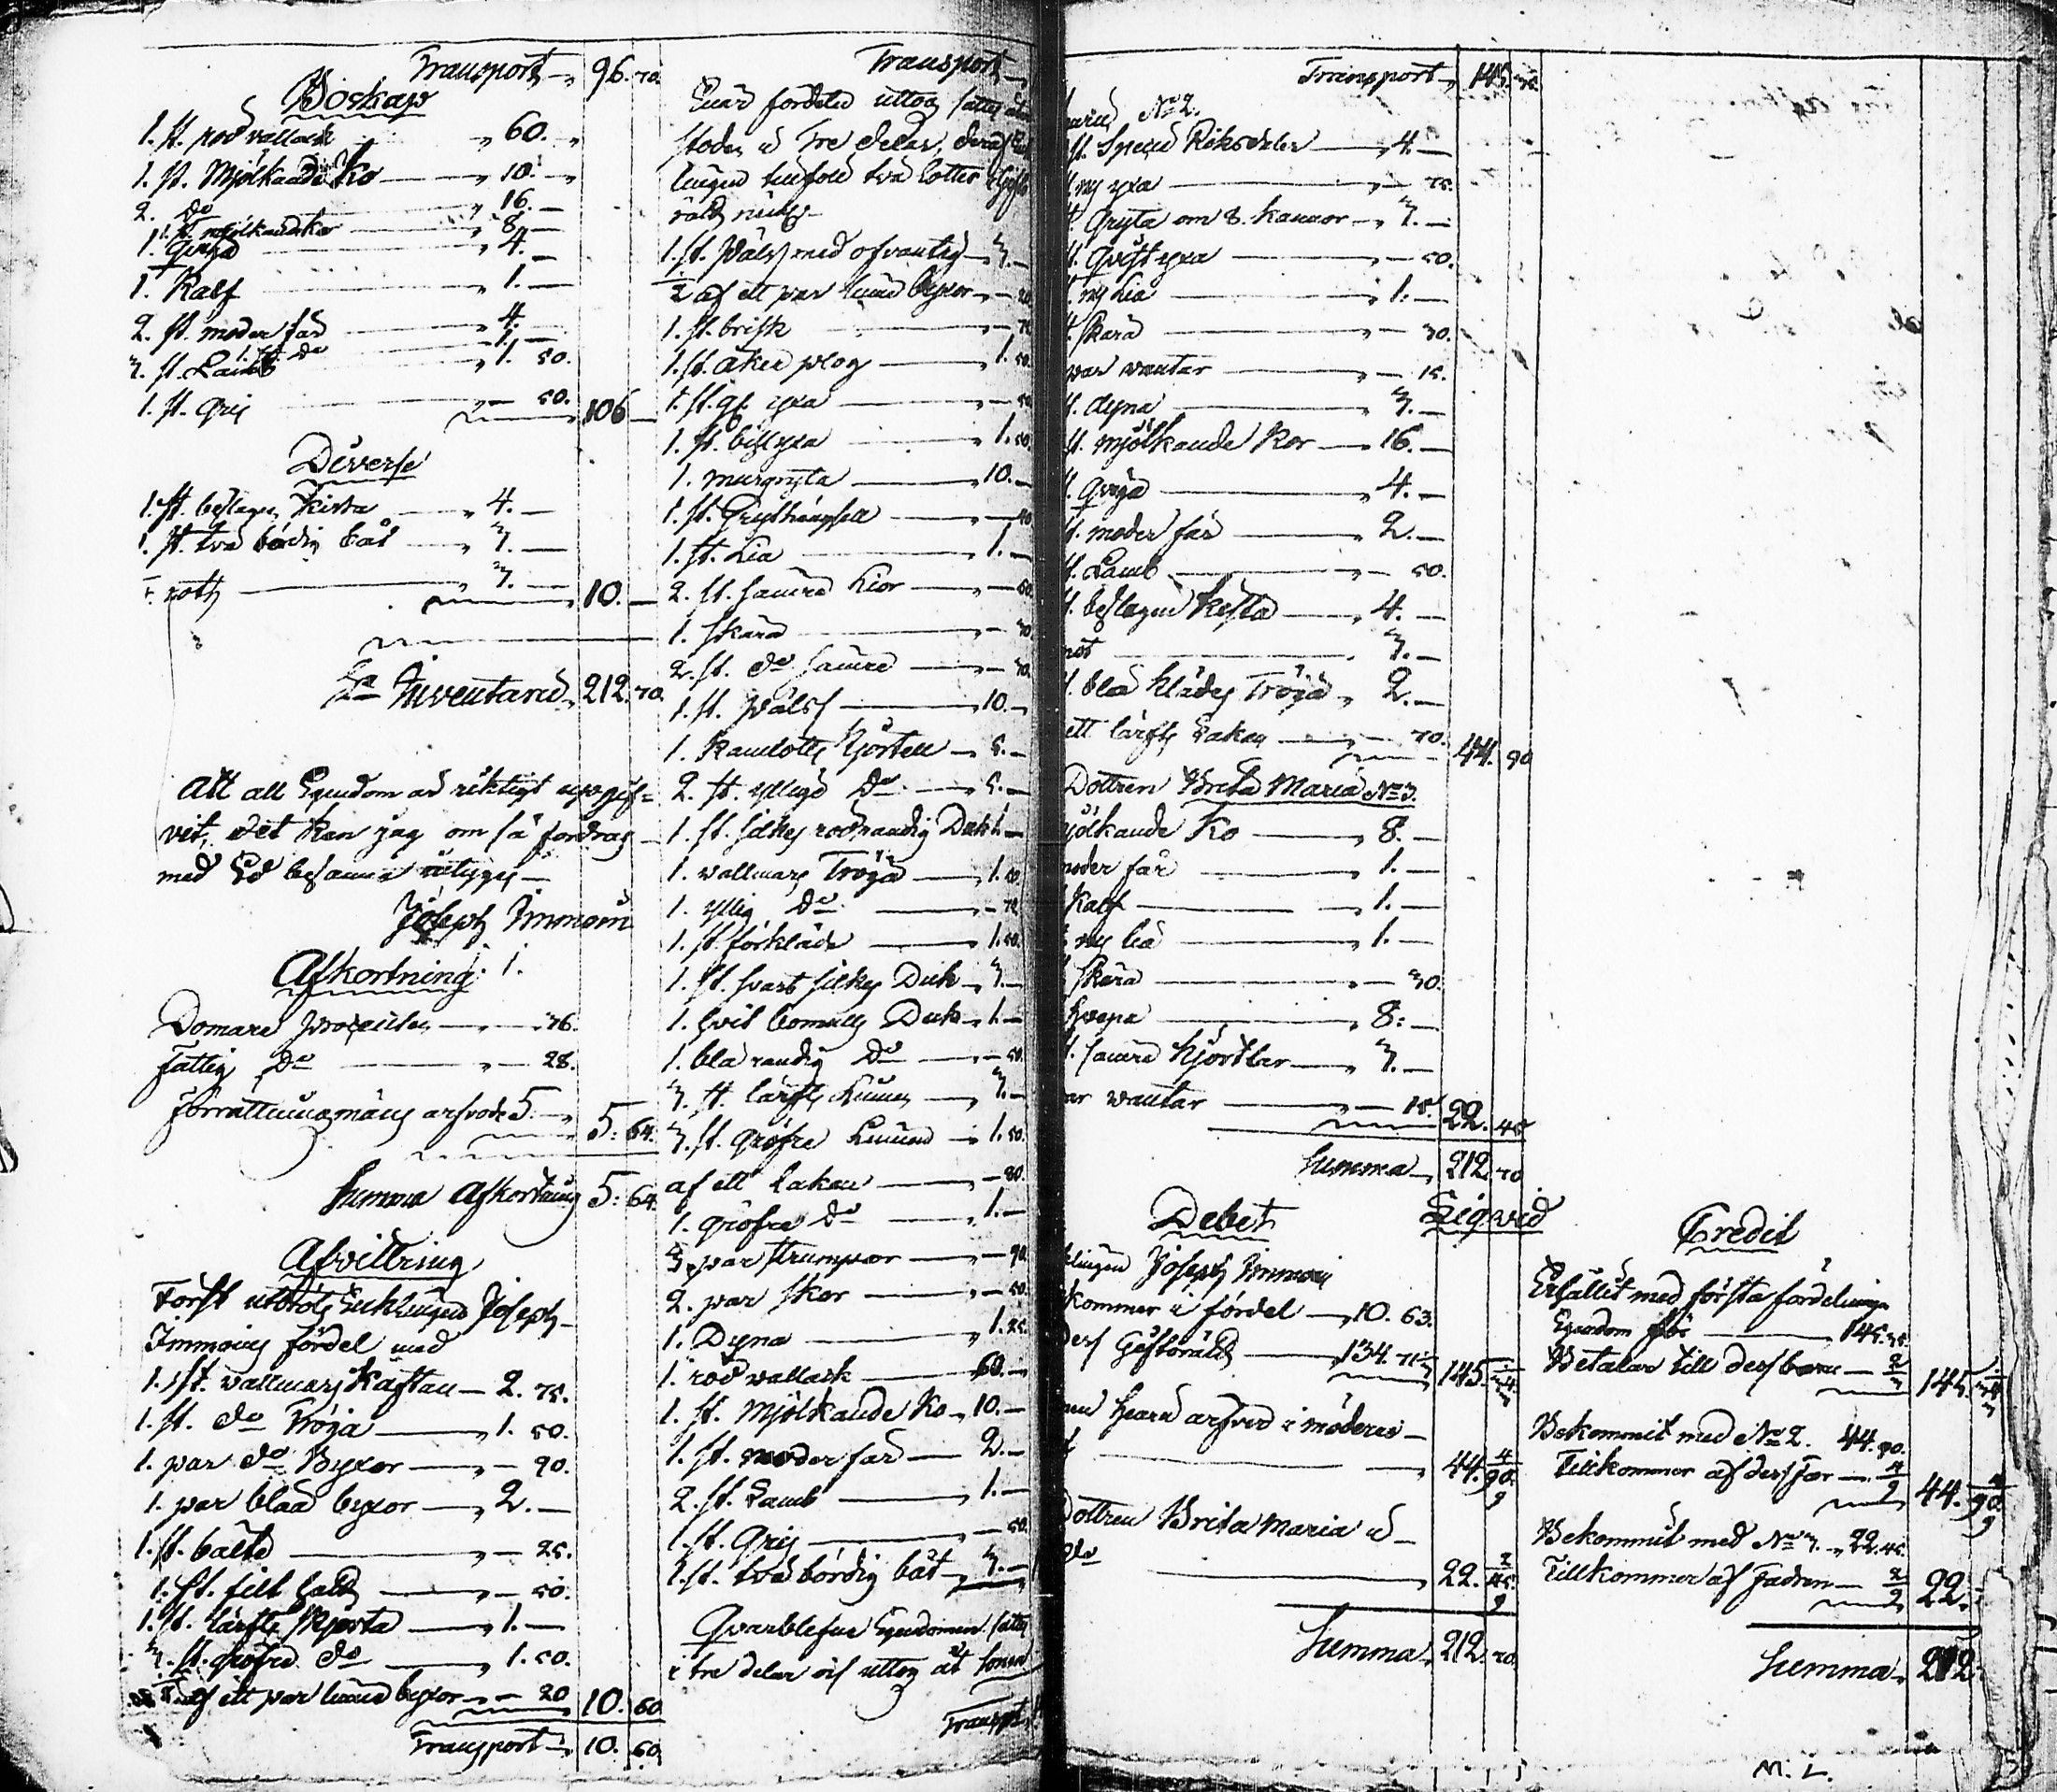 Transport 96. 70.
Boskap
1. st. röd vallack 60.
1. st. Mjölkande Ko 10.
2. Do 16.
1. st. mjölkande ko 8.
1. qviga 4.
1. Kalf 1.
2. st. moder får 4.
1. st. Do 1.
3. st. Lamb 1. 50.
1. st. gris 50. 106
Diverse
1. st. beslagen kista 4.
1. st. två bördig båt 3.
noth 3. 10.
Sa Inventarii 212. 70.
Att all Egendom är riktigt uppgif=
vit, det kan jag om så fordras
med Ed besanna betygar
Joseph Immoin
Afkortning 1.
Domare procenten 36.
Fattig Do 28.
Förrättningsmäns arfvode 5. 5: 64.
Summa Afkortning 5: 64.
Afvittring
Först utbröts Enklingen Joseph
Immoins fördel med
1. st. vallmars Kaftan 2. 75.
1. st. Do Tröja 1. 50.
1. par Do Byxor 90.
1. par blaa byxor 2.
1. st. bälte 25.
1. st. filt hatt 50.
1. st. lärfts skjorta 1.
3. st. gröfre Do 1. 50.
af ett par byxor 20 10. 60
Transport 10. 60.
Transport
fördelen uttog sattes
stoden i Tre delar,
lingen tillföll två lotter
rätt
1. st. Päls med ofvantyg 3.
½ af ett par byxor 20
1. st. brisk
1. st. åker plog 1. 50.
1. st. yxa 50
1. st. bilyxa 1. 50.
1. murgryta 10.
1. st. 40
1. st. Lia 1.
2. st. sämre Lior 50.
1. skära 30
2. st. Do sämre 30.
1. st. päls 10.
1. Kamlotts kjortell 5.
2. st. yllige Do 5.
1. st. silkes rödrandig Duk 1.
1. vallmars Tröja 1. 50.
1. yllig Do 75
1. st. förkläde 1. 50.
1. st. svart silkes Duk 3.
1. hvit bomulls Duk 1.
1. blå randig Do 50.
3. st. lärfts Linnen 3.
3. st. gröfre Linnen 1. 50.
af ett lakan 80.
1. gröfre Do 1.
3. par strumpor 90.
2. par skor 50.
1. Dyna 1. 25.
1. röd vallack 60.
1. st. Mjölkande Ko 10.
1. st. moder får 2.
2. st. Lamb 1.
1. st. gris 50.
1. st. två bördig båt 3.
Qvarblefne Egendomen sattes
i tre delar och uttog åt sonen
Transport
Transport 145. 35.
No 2.
st. Specie Riksdaler 4.
ny yxa 75.
Gryta om 8. kannor 3.
st. qvist yxa 50.
ny Lia 1.
skära 30.
par vantar 15.
st. dyna 3.
st. mjölkande Kor 16.
st. qviga 4.
st. moder får 2.
st. Lamb 50.
st. beslagen kista 4.
not 3.
st. blå klädes Tröja 2.
ett lärfts Lakan 70. 44. 90
Dottren Brita Maria No 3.
mjölkande Ko 8.
moder får 1.
Kalf 1.
ny lia 1.
skära 30.
8.
st. sämre kjortlar 3.
par vantar 15. 22. 45
Summa 212. 70
Debet Liqvid Credit
Enklingen Joseph Immoin
tillkommer i fördel 10. 63.
dess Giftorätt 134. 145.
arfver i möderne
44. 90.
Dottren Brita Maria
Do 22. 45.
Summa 212. 70.
Erhållit med första fördelningen
Egendom för 145. 35.
Betalar till dess barn 145.
Bekommit med No 2. 44. 90.
Tillkommer af dess Far 44. 90.
Bekommit med No 3. 22. 45.
Tillkommer af Fadren 22.
Summa 212.
M. L.